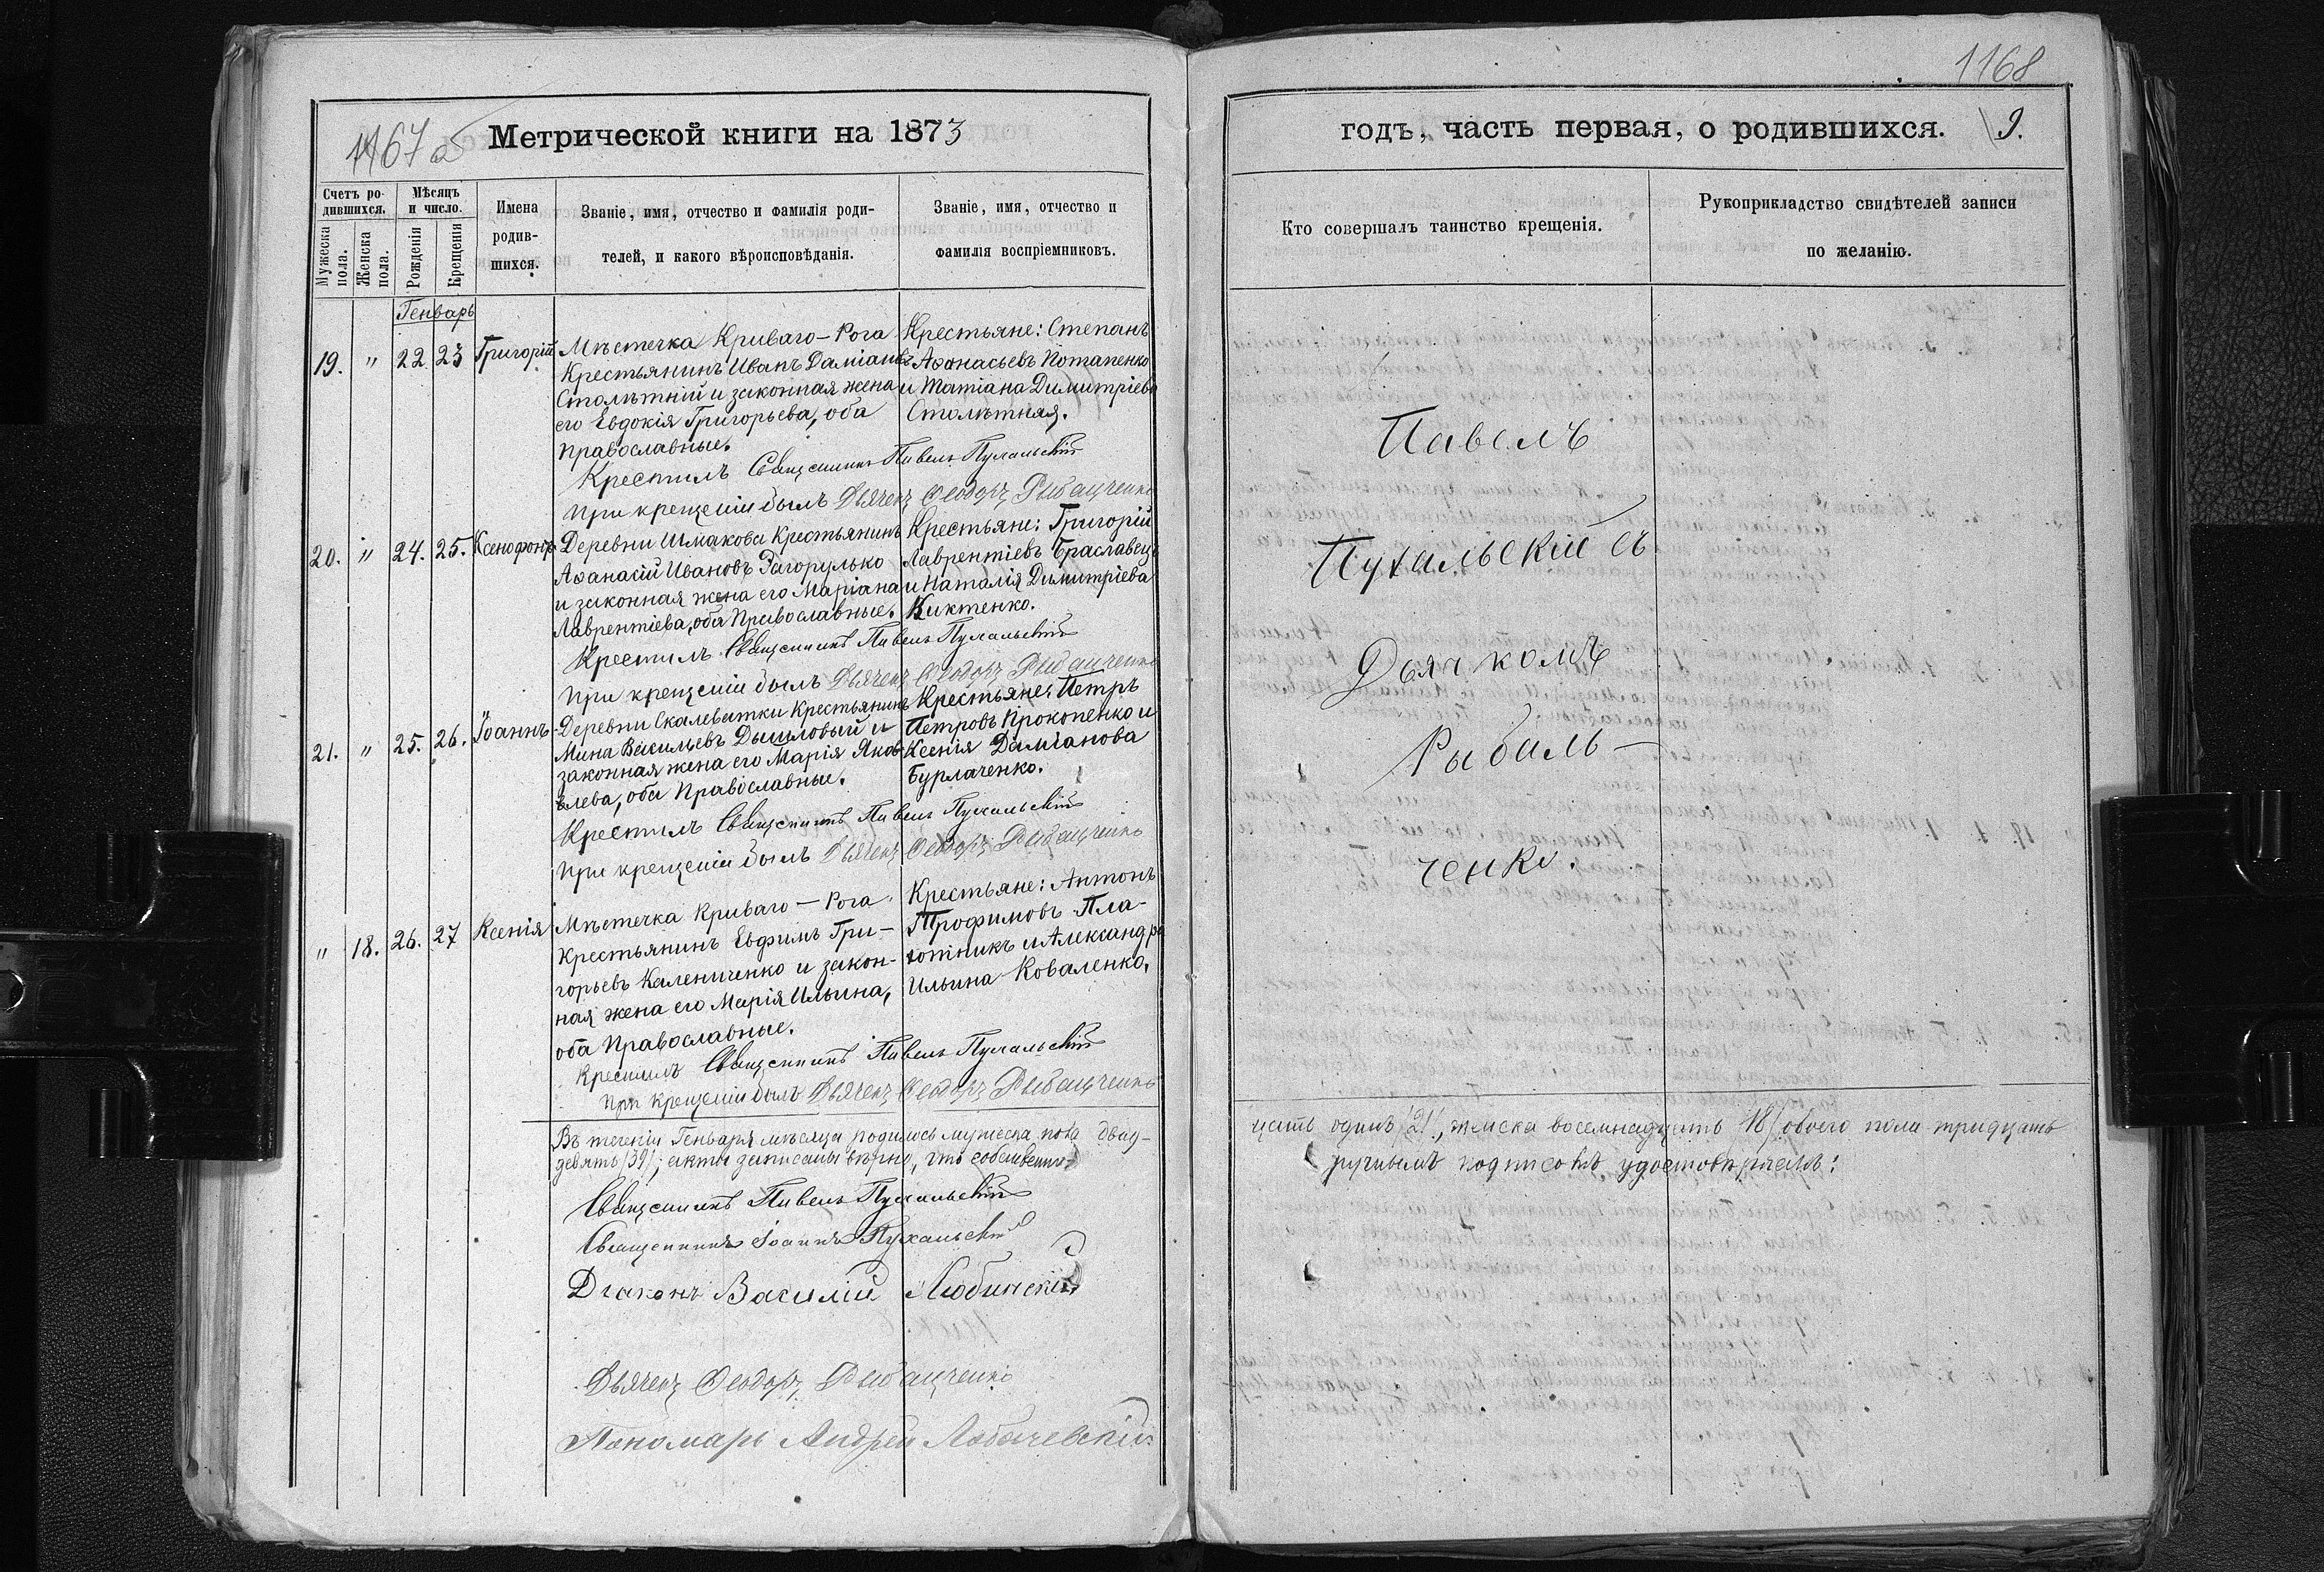 1167 об
Метрической книги на 1873
Счетъ ро-
дившихся.
Мѣсяцъ
и число.
Мужеска
пола.
Женска
пола.
Рожденія
Крещенія
Имена
родив-
шихся.
Званіе, имя, отчество и фамилія роди-
телей, и какого вѣроисповѣданія.
Званіе, имя, отчество и
фамилія воспріемниковъ.
Генварь
19. " 22 23 Григорій
Мѣстечка Криваго-Рога
Крестьянинъ Иванъ Даміановъ
Столѣтній и законная жена
его Евдокія Григорьева, оба
Православные.
Крестьяне: Степанъ
Аѳанасьевъ Потапенко
и Татіана Димитріева
Столѣтная.
Крестилъ Священникъ Павелъ Пухальскій
При крещеніи былъ Дьячекъ Ѳеодоръ Рыбальченко
20. " 24. 25. Ксенофонтъ
Деревни Шмакова Крестьянинъ
Аѳанасій Ивановъ Загорулько
и законная жена его Маріана
Лаврентіева, оба Православные.
Крестьяне: Григорій
Лаврентіевъ Браславецъ
и Наталія Димитріева
Киктенко.
Крестилъ Священникъ Павелъ Пухальскій
При крещеніи былъ Дьячекъ Ѳеодоръ Рыбальченко
21. " 25. 26. Іоаннъ
Деревни Скалеватки Крестьянинъ
Мина Васильевъ Дышловый и
законная жена его Марія Яков-
влева, оба Православные.
Крестьяне: Петръ
Петровъ Прокопенко и
Ксенія Даміанова
Бурлаченко.
Крестилъ Священникъ Павелъ Пухальскій
При крещеніи былъ Дьячекъ Ѳеодоръ Рыбальченко
" 18. 26. 27 Ксенія
Мѣстечка Криваго-Рога
Крестьянинъ Евфимъ Гри-
горьевъ Калениченко и закон-
ная жена его Марія Ильина,
оба Православные.
Крестьяне: Антонъ
Трофимовъ Пла-
хотникъ и Александра
Ильина Коваленко.
Крестилъ Священникъ Павелъ Пухальскій
При крещеніи былъ Дьячекъ Ѳеодоръ Рыбальченко
Въ теченіи Генваря мѣсяца родилось мужеска пола двад-
девять /39/; акты записаны вѣрно, что собственно-
Священникъ Павелъ Пухальскій
Священникъ Іоаннъ Пухальскій
Діаконъ Василій Любинскій
Дьячекъ Ѳеодоръ Рыбальченко
Пономарь Андрей Лобачевскій
1168
годъ, часть первая, о родившихся. 9.
Кто совершалъ таинство крещенія.
Рукоприкладство свидѣтелей записи
по желанію.
Павелъ
Пухальскій съ
Дьячкомъ
Рыбаль-
ченко.
цать одинъ /21/, женска восемнадцать /18/ обоего пола тридцать
ручнымъ подписомъ удостовѣряемъ: